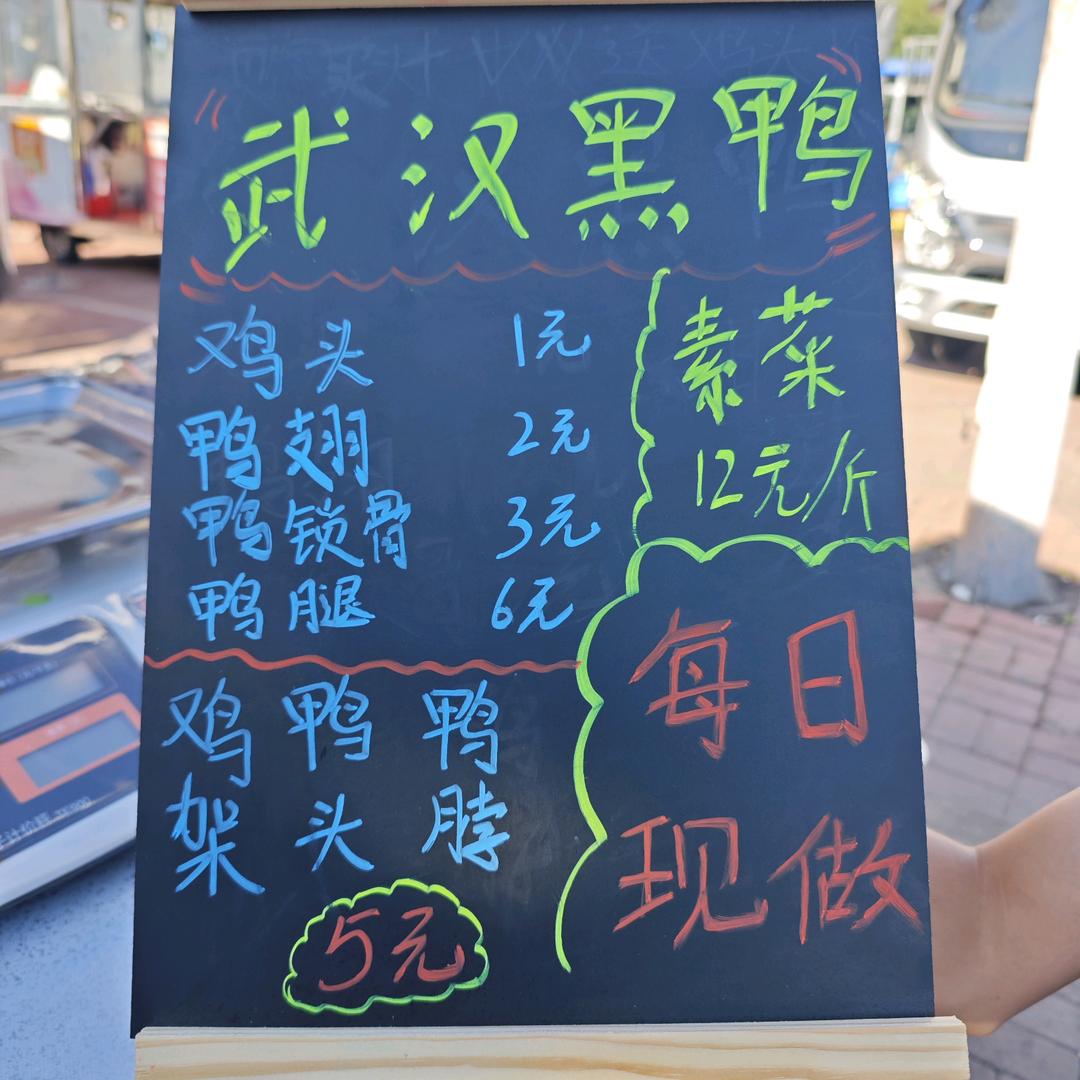 武汉黑鸭
鸡头 1元
鸭翅 2元
鸭锁骨 3元
鸭腿 6元
素菜
12元/斤
鸡架 鸭头 鸭脖
5元
每日
现做